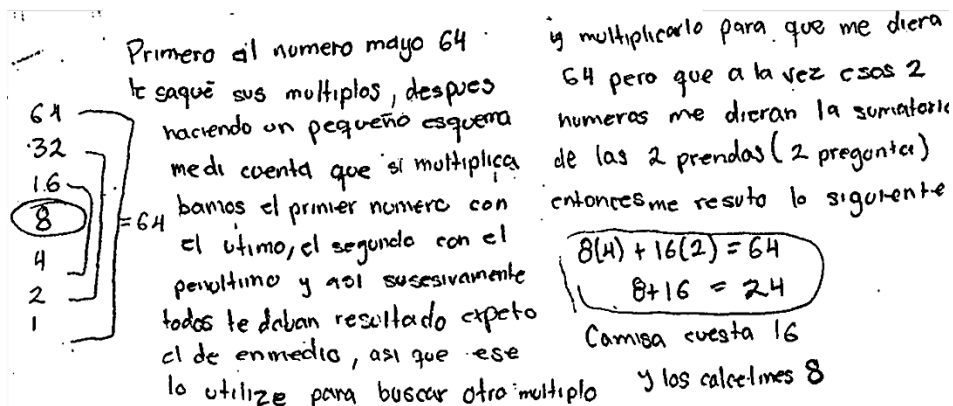 64
32
16
8
4
2
1
= 64
Primero al numero mayo 64
le saqué sus multiplos, despues
haciendo un pequeño esquema
me di cuenta que si multiplica
bamos el primer numero con
el utimo, el segundo con el
penultimo y asi susesivamente
todos te daban resultado expeto
el de enmedio, asi que ese
lo utilize para buscar otro multiplo
y multiplicarlo para que me diera
64 pero que a la vez esos 2
numeros me dieran la sumatoria
de las 2 prendas (2 pregunta)
entonces me resuto lo siguiente
8(4) + 16(2) = 64
8+16 = 24
Camisa cuesta 16
y los calcetines 8